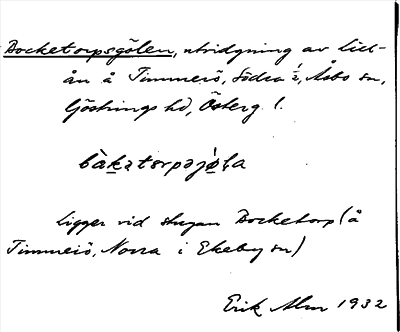 Bocketorpsgölen, utvidgning av Lill-
ån å Timmerö, Södra ½, Åsbo sn,
Göstrings hd, Österg. l.
bàkatorpajø̀la
Ligger vid stugan Bocketorp (å
Timmerö, Norra i Ekeby sn)
Erik Alm 1932